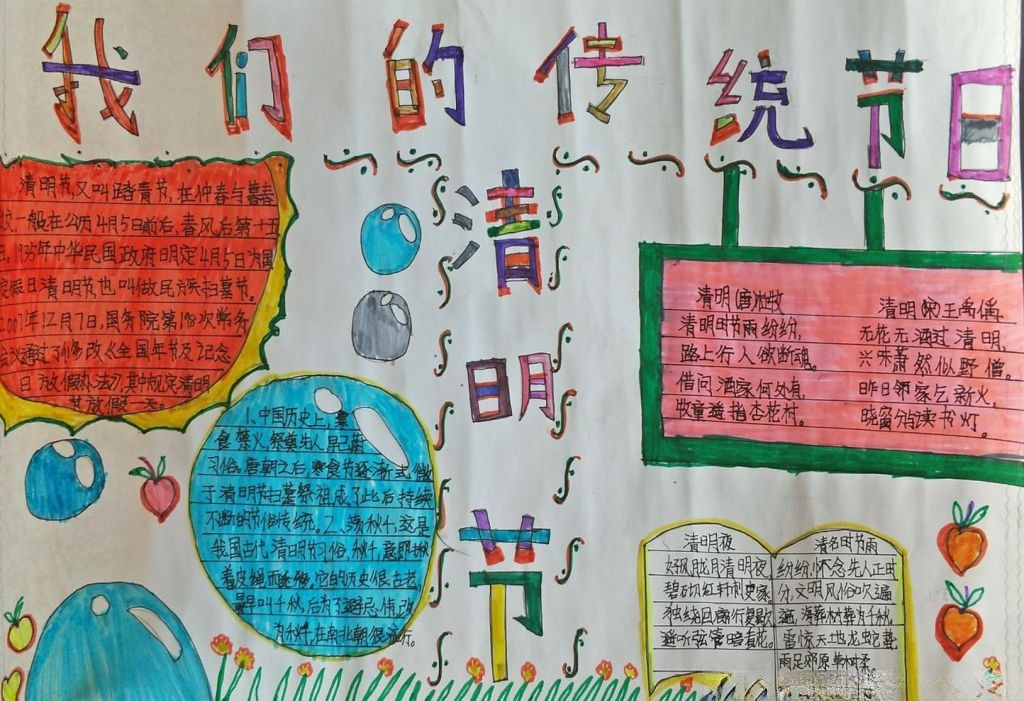 我们的传统节日
清明节
清明节,又叫踏青节,在仲春与暮春
一般在公历4月5日前后,春风后第十五
1935年中华民国政府明定4月5日为国
假日清明节,也叫做民族扫墓节。
2007年12月7日,国务院第198次常务
会议通过了修改《全国年节及纪念
日放假办法》,其中规定清明
节放假一天。
1、中国历史上,寒
食禁火,祭奠先人早已蔚
习俗。唐朝之后,寒食节逐渐式微
于清明节扫墓祭祖成了此后持续
不断的节俗传统。2、荡秋千,这是
我国古代清明节习俗,秋千,意即揪
着皮绳而迁移,它的历史很古老
最早叫千秋,后为了避忌讳,改
为秋千,在南北朝很流行。
清明(唐)杜牧
清明时节雨纷纷,
路上行人欲断魂。
借问酒家何处有,
牧童遥指杏花村。
清明(宋)王禹偁
无花无酒过清明,
兴味萧然似野僧。
昨日邻家乞新火,
晓窗分与读书灯。
清明夜
好风胧月清明夜
碧砌红轩刺史家
独绕回廊行复歇
遥听弦管暗看花。
清名时节雨
纷纷,怀念先人正时
分,文明风俗吹遍
遍,海葬树葬为千秋,
雷惊天地龙蛇蛰
雨足郊原草树柔